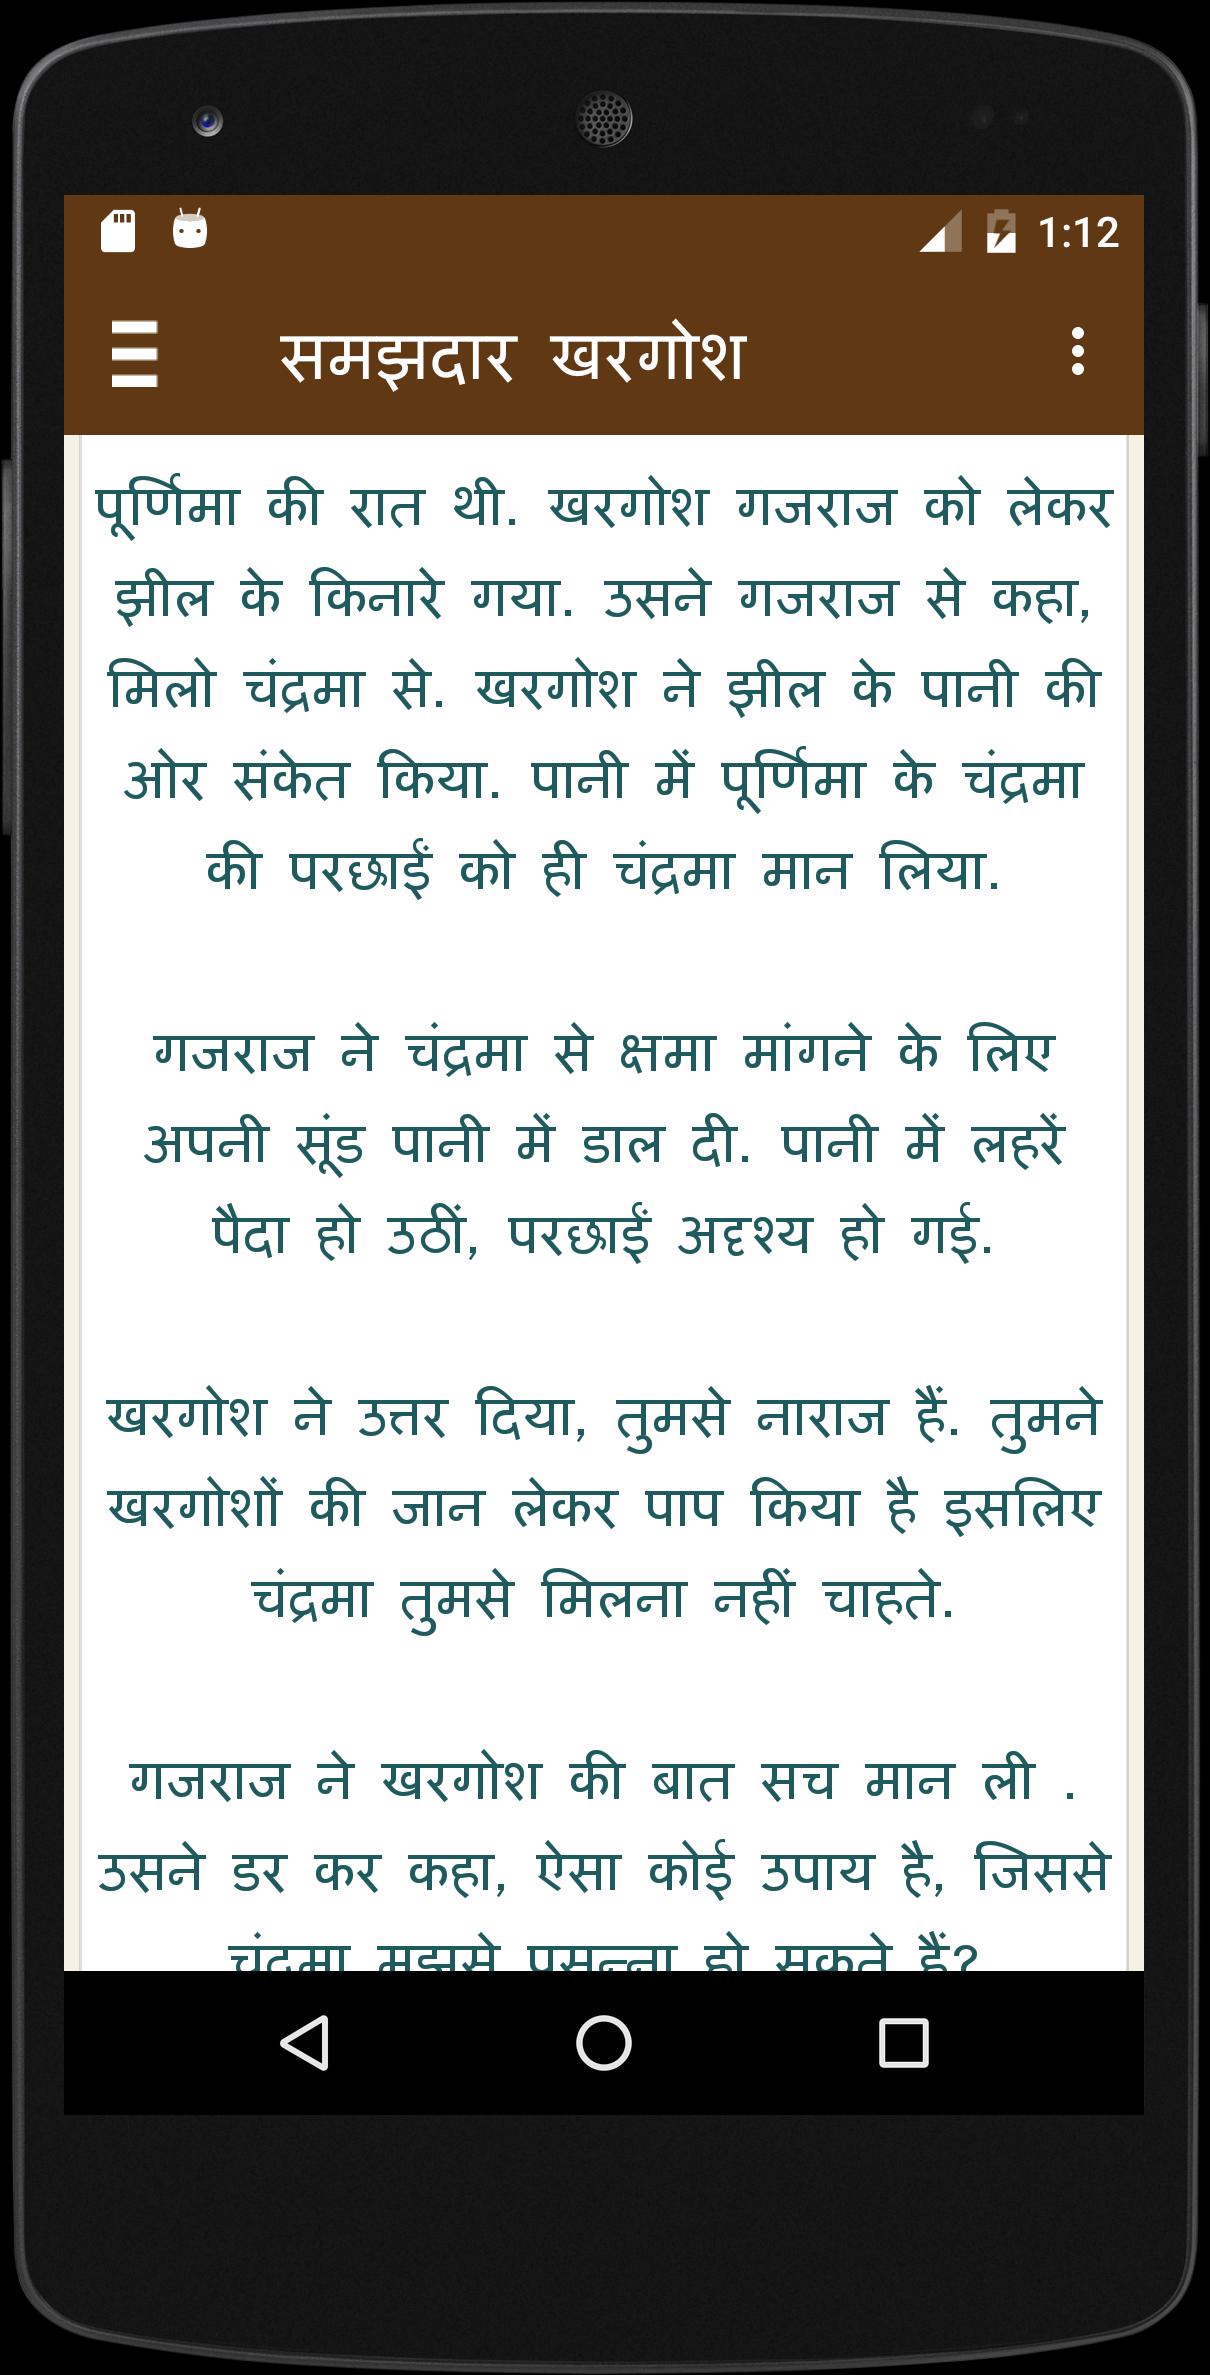 1:12
समझदार खरगोश
पूर्णिमा की रात थी. खरगोश गजराज को लेकर
झील के किनारे गया. उसने गजराज से कहा,
मिलो चंद्रमा से. खरगोश ने झील के पानी की
ओर संकेत किया. पानी में पूर्णिमा के चंद्रमा
की परछाईं को ही चंद्रमा मान लिया.
गजराज ने चंद्रमा से क्षमा मांगने के लिए
अपनी सूंड पानी में डाल दी. पानी में लहरें
पैदा हो उठीं, परछाईं अदृश्य हो गई.
खरगोश ने उत्तर दिया, तुमसे नाराज हैं. तुमने
खरगोशों की जान लेकर पाप किया है इसलिए
चंद्रमा तुमसे मिलना नहीं चाहते.
गजराज ने खरगोश की बात सच मान ली .
उसने डर कर कहा, ऐसा कोई उपाय है, जिससे
चंद्रमा मुझसे प्रसन्ना हो सकते हैं?